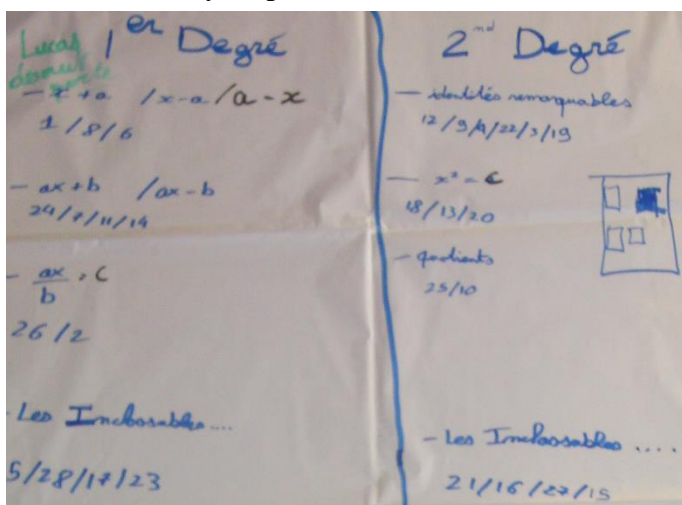 Lucas
1er Degré
- x + a / x - a / a - x
1/8/6
- ax + b / ax - b
24/7/11/14
- ax/b = c
26/2
- Les Inclassables....
5/28/17/23
2nd Degré
- identités remarquables
12/9/4/22/3/19
- x² = c
18/13/20
- quotients
25/10
- Les Inclassables ....
21/16/27/15